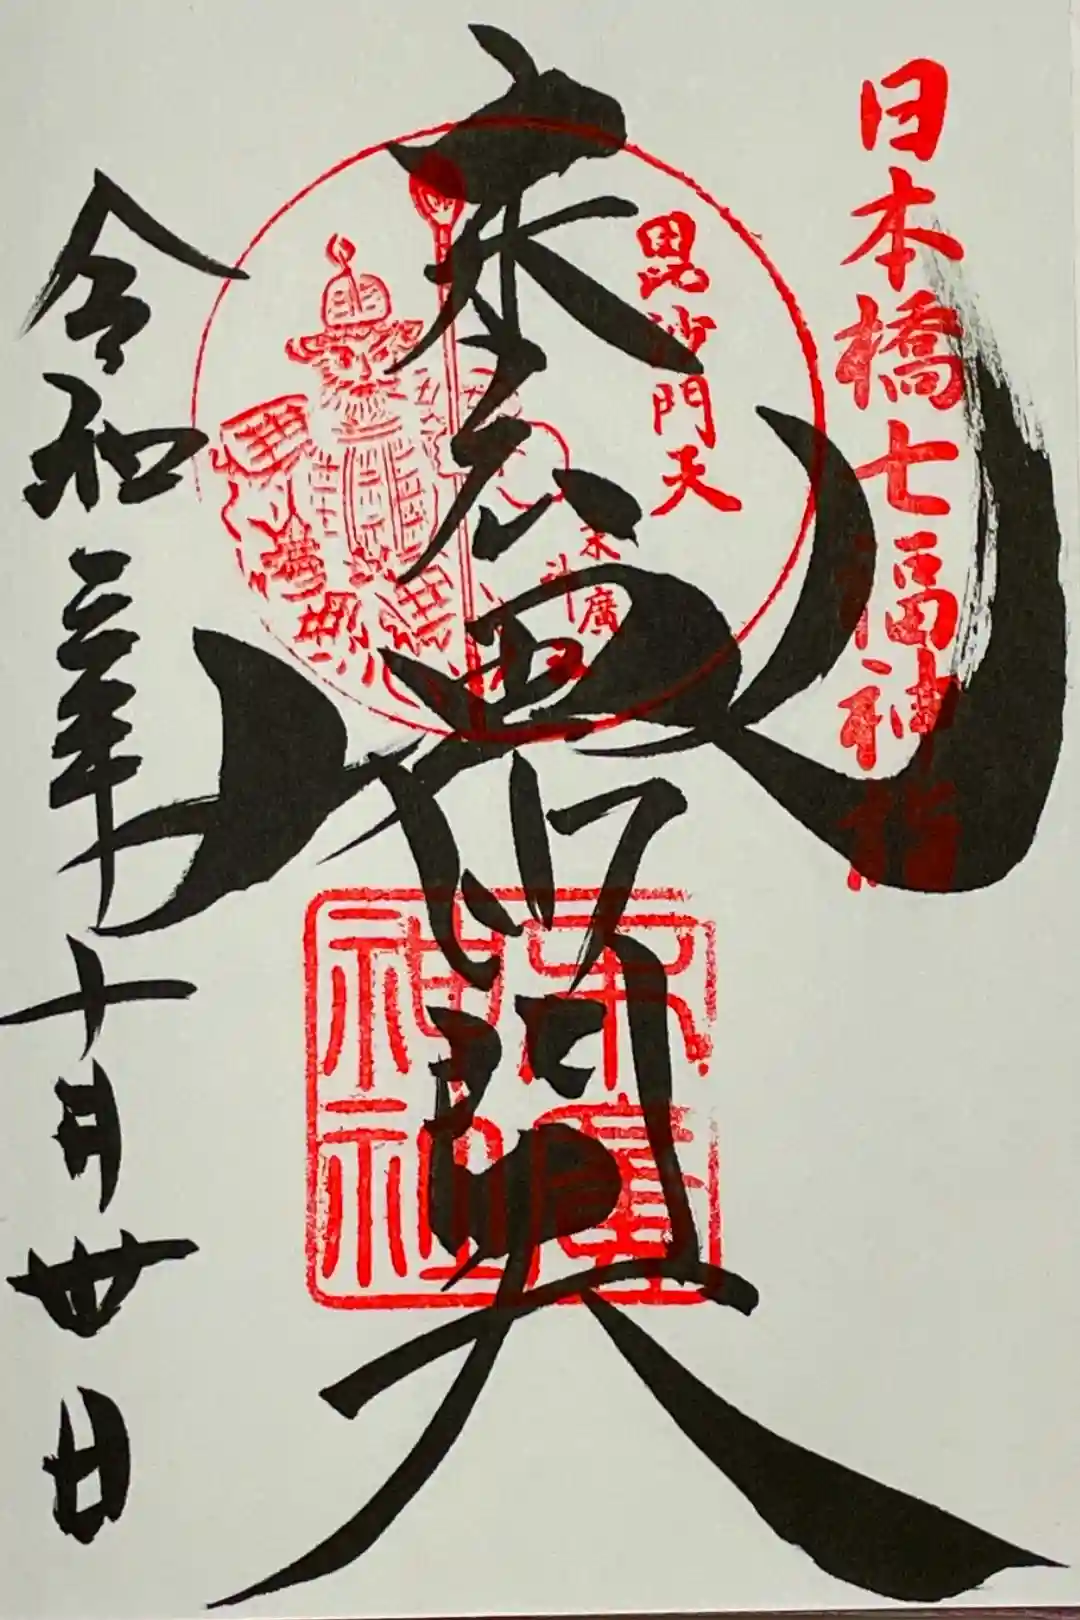 日本橋七福神詣
毘沙門天
末廣神社
末広毘沙門天
末廣神社
令和三年十月卅日